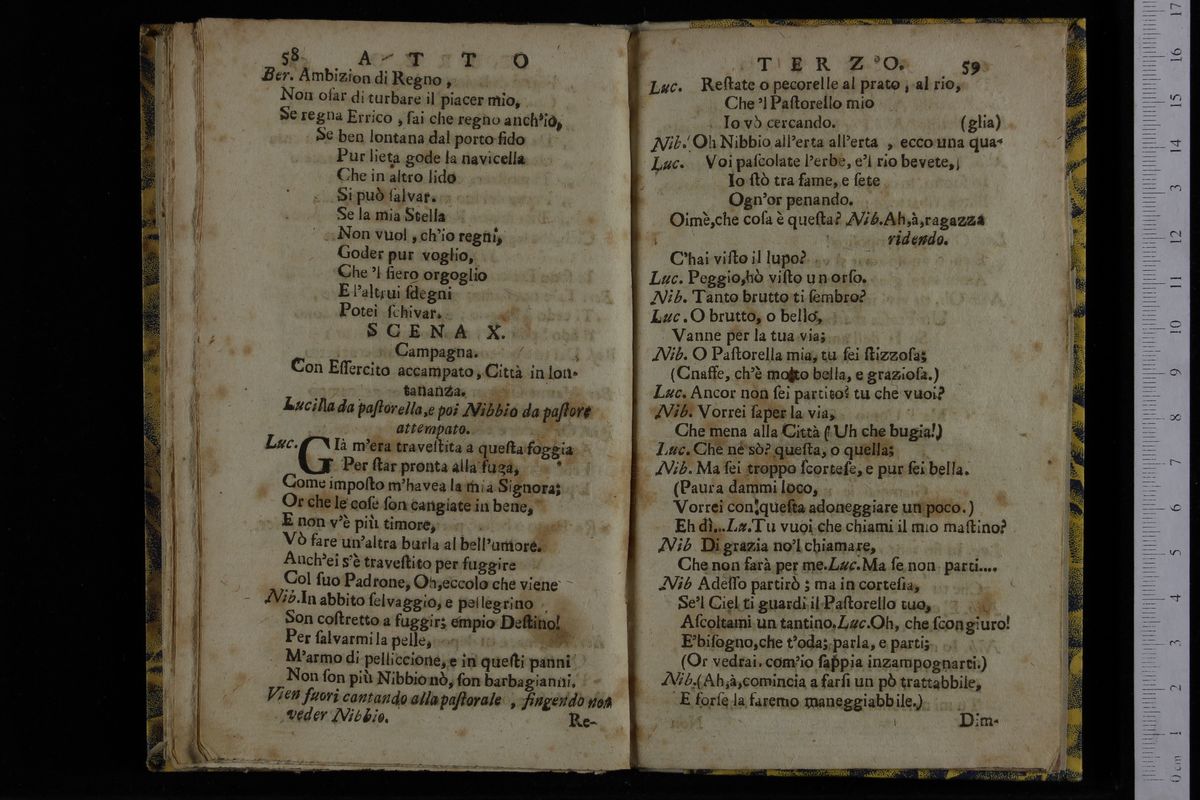 58 A T T O
Ber. Ambizion di Regno,
Non oſar di turbare il piacer mio,
Se regna Errico, ſai che regno anch'io,
Se ben lontana dal porto fido
Pur lieta gode la navicella
Che in altro lido
Si può ſalvar.
Se la mia Stella
Non vuol, ch'io regni,
Goder pur voglio,
Che 'l fiero orgoglio
E l'altrui ſdegni
Potei ſchivar.
SCENA X.
Campagna.
Con Eſſercito accampato, Città in lon-
tananza.
Lucilla da paſtorella, e poi Nibbio da paſtore
attempato.
Luc. GIà m'era traveſtita a queſta foggia
Per ſtar pronta alla fuga,
Come impoſto m'havea la mia Signora;
Or che le coſe ſon cangiate in bene,
E non v'è più timore,
Vò fare un'altra burla al bell'umore.
Anch'ei s'è traveſtito per fuggire
Col ſuo Padrone, Oh, eccolo che viene
Nib. In abbito ſelvaggio, e pellegrino
Son coſtretto a fuggir; empio Deſtino!
Per ſalvarmi la pelle,
M'armo di pelliccione, e in queſti panni
Non ſon più Nibbio nò, ſon barbagianni.
Vien fuori cantando alla paſtorale, fingendo non
veder Nibbio.
Re-
TERZO. 59
Luc. Reſtate o pecorelle al prato, al rio,
Che 'l Paſtorello mio
Io vò cercando. (glia)
Nib. Oh Nibbio all'erta all'erta, ecco una qua-
Luc. Voi paſcolate l'erbe, e'l rio bevete,
Io ſtò tra fame, e ſete
Ogn'or penando.
Oimè, che coſa è queſta? Nib. Ah, à, ragazza
ridendo.
C'hai viſto il lupo?
Luc. Peggio, hò viſto un orſo.
Nib. Tanto brutto ti ſembro?
Luc. O brutto, o bello,
Vanne per la tua via;
Nib. O Paſtorella mia, tu ſei ſtizzoſa;
(Cnaffe, ch'è molto bella, e grazioſa.)
Luc. Ancor non ſei partito? tu che vuoi?
Nib. Vorrei ſaper la via,
Che mena alla Città (Uh che bugia!)
Luc. Che nè sò? queſta, o quella;
Nib. Ma ſei troppo ſcorteſe, e pur ſei bella.
(Paura dammi loco,
Vorrei con queſta adoneggiare un poco.)
Eh dì... Lu. Tu vuoi che chiami il mio maſtino?
Nib Di grazia no'l chiamare,
Che non farà per me. Luc. Ma ſe non parti....
Nib Adeſſo partirò; ma in corteſia,
Se'l Ciel ti guardi il Paſtorello tuo,
Aſcoltami un tantino. Luc. Oh, che ſcongiuro!
E'biſogno, che t'oda; parla, e parti;
(Or vedrai. com'io ſappia inzampognarti.)
Nib. (Ah, à, comincia a farſi un pò trattabbile,
E forſe la faremo maneggiabbile.)
Dim-